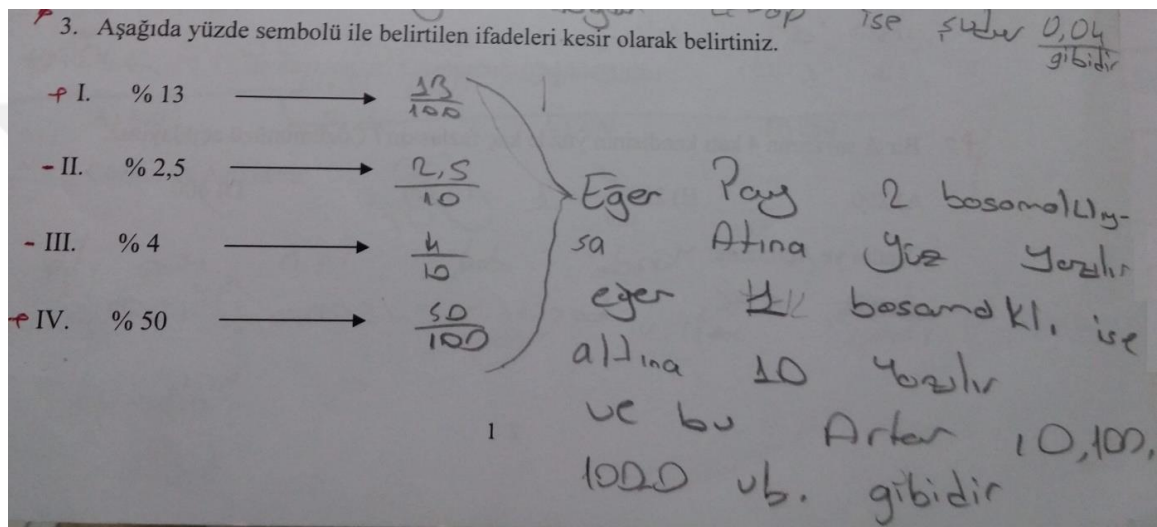 ise şudur 0,04
gibidir
3. Aşağıda yüzde sembolü ile belirtilen ifadeleri kesir olarak belirtiniz.
I. % 13 13/100
II. % 2,5 2,5/10
III. % 4 4/10
IV. % 50 50/100
Eğer Pay 2 bosomoklıy-
sa Atına Yüz Yazılır
eğer 1 bosamakl. ise
altına 10 Yazılır
ve bu Artar 10,100,
1000 vb. gibidir
1